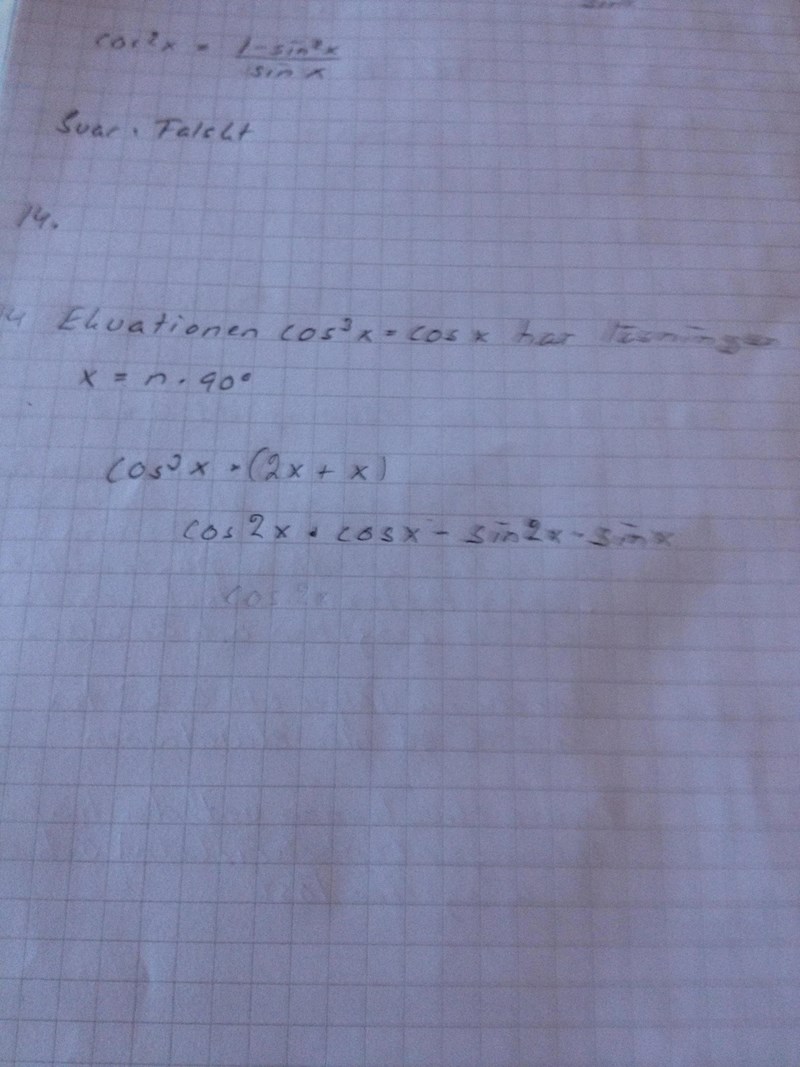 cos²x = 1-sin²x / sin x
Svar: Falskt
14.
14 Ekvationen cos³x = cos x har
x = n · 90°
cos³x · (2x + x)
cos2x · cosx - sin2x - sin x
cos 2x